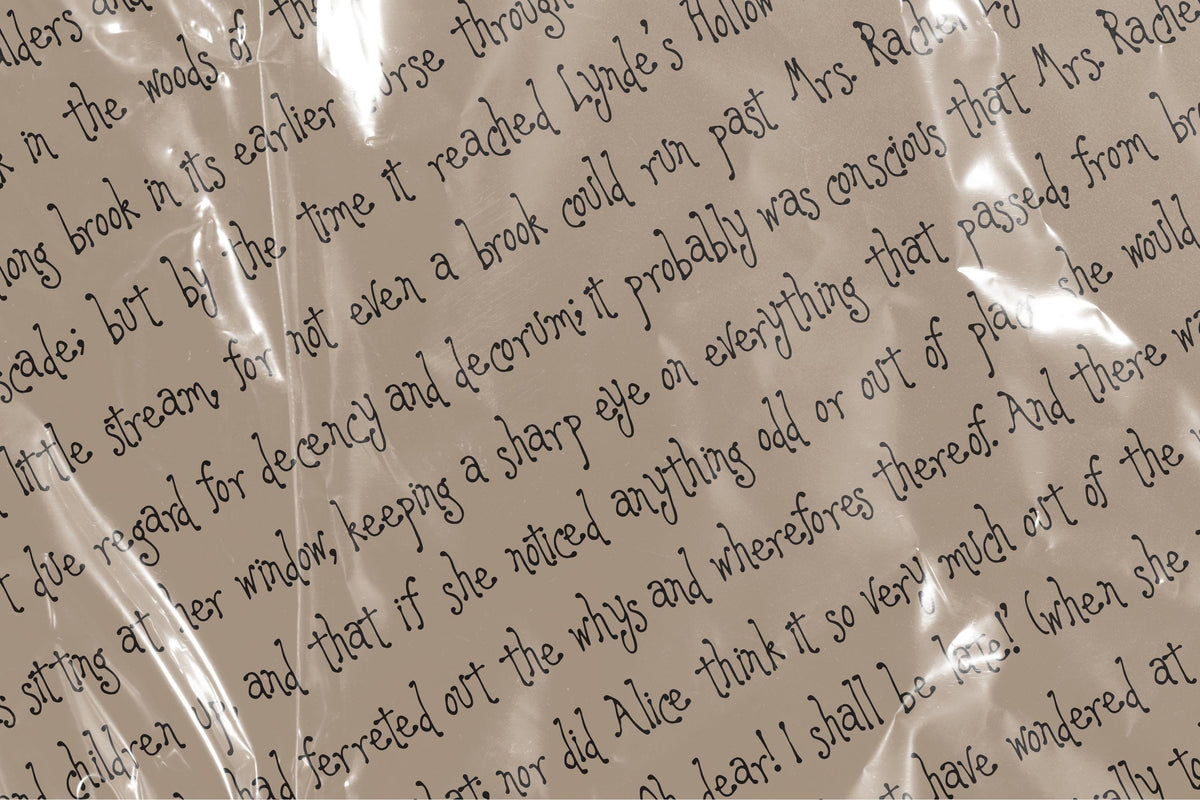 ulders and
k in the woods of th
long brook in its earlier ourse through
scade; but by the time it reached Lynde's Hollow
little stream, for not even a brook could run past Mrs. Rachel Ly
t due regard for decency and decorum; it probably was conscious that Mrs. Rache
s sitting at her window, keeping a sharp eye on everything that passed, from bro
nd children up, and that if she noticed anything odd or out of place she would
had ferreted out the whys and wherefores thereof. And there w
hat; nor did Alice think it so very much out of the w
Oh dear! I shall be late!' (when she
to have wondered at
ally to